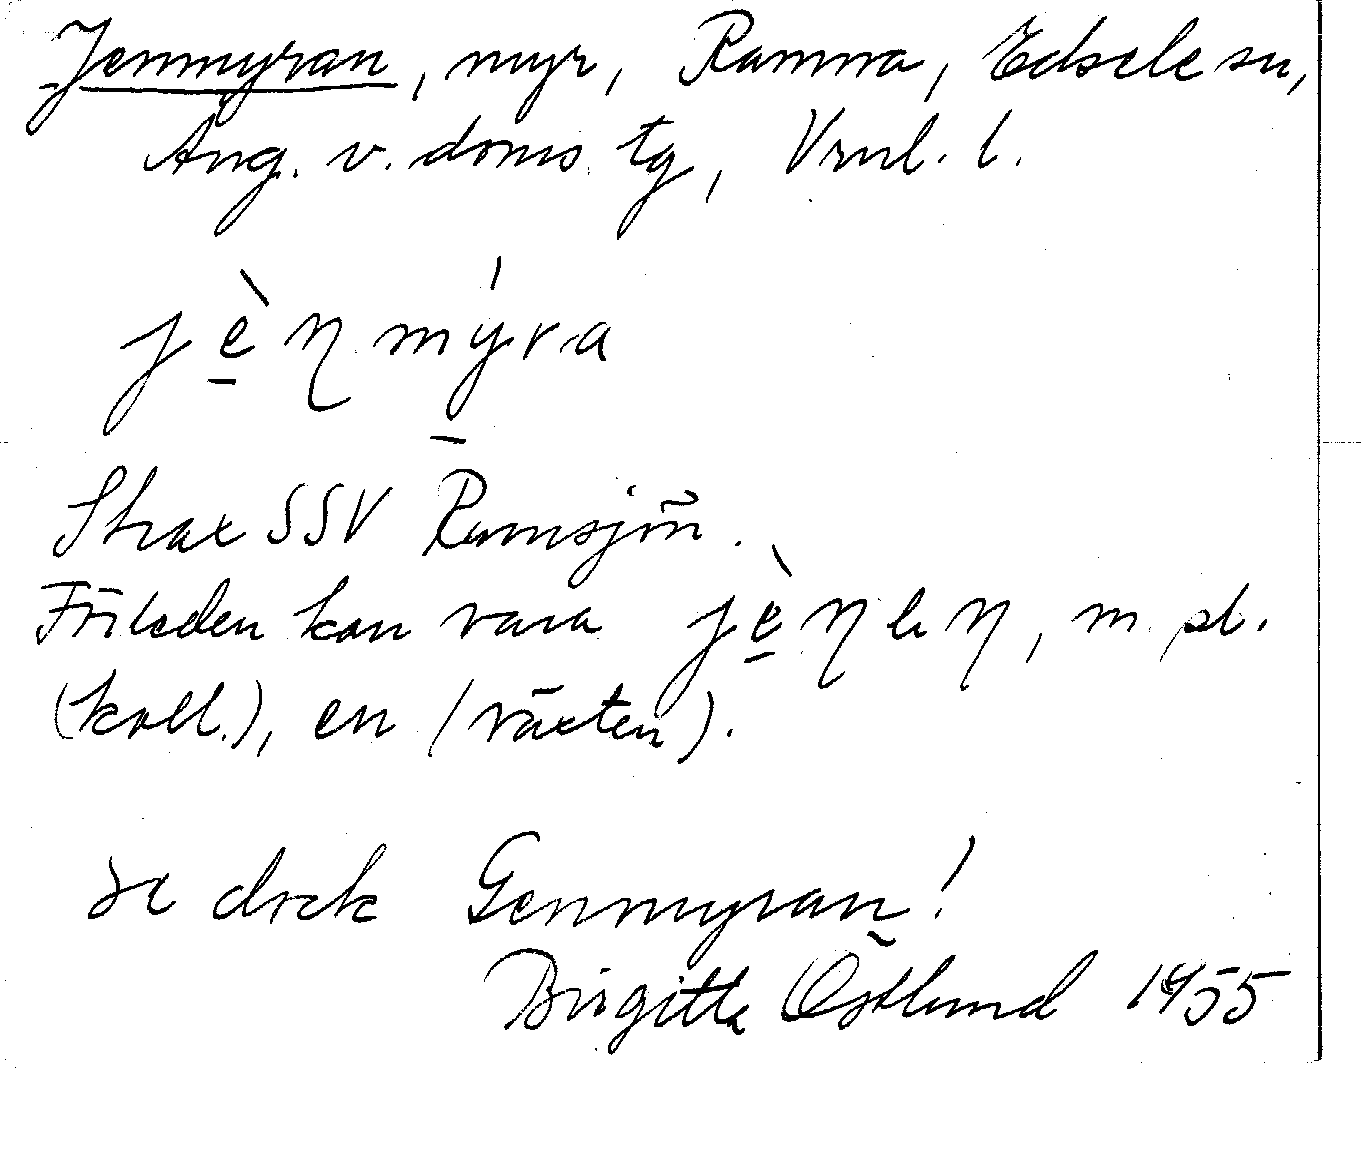 Jenmyran, myr, Ramna, Edsele sn,
Ång. v. doms. tg, Vrnl. l.
jè̱ŋmý̱ra
Strax SSV Ramsjön.
Förleden kan vara jè̱ŋeŋ, m. pl.
(koll.), en (växten).
se dock Genmyran!
Birgitta Östlund 1955